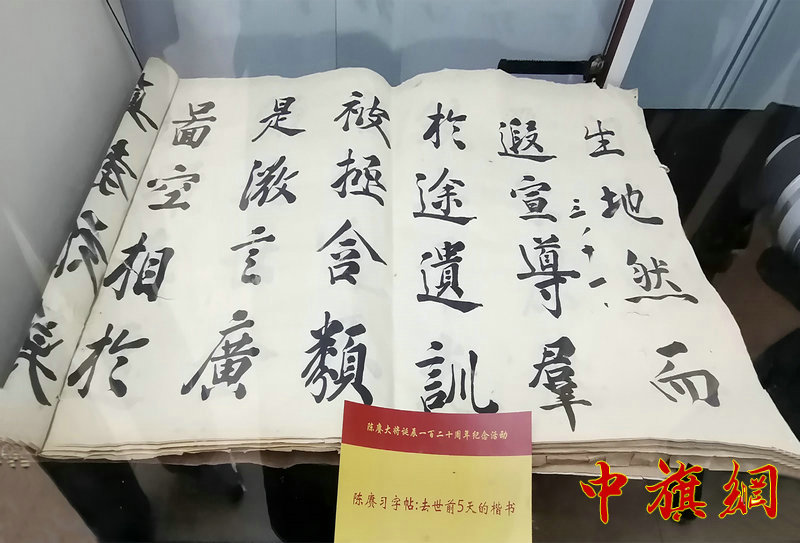 生地然而
三、十一、
遐宣導羣
於途遺訓
被拯含類
是微言廣
啚空相於
陈赓大将诞辰一百二十周年纪念活动
陈赓习字帖:去世前5天的楷书
中旗網